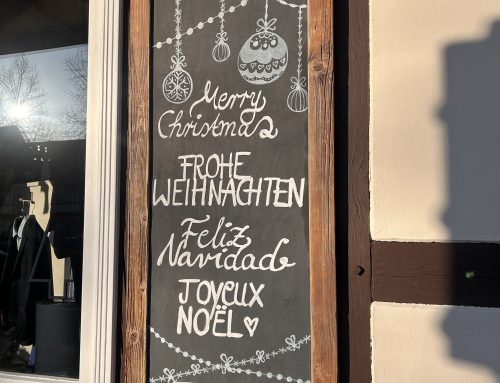 Merry
Christmas
FROHE
WEIHNACHTEN
Feliz
Navidad
JOYEUX
NOËL